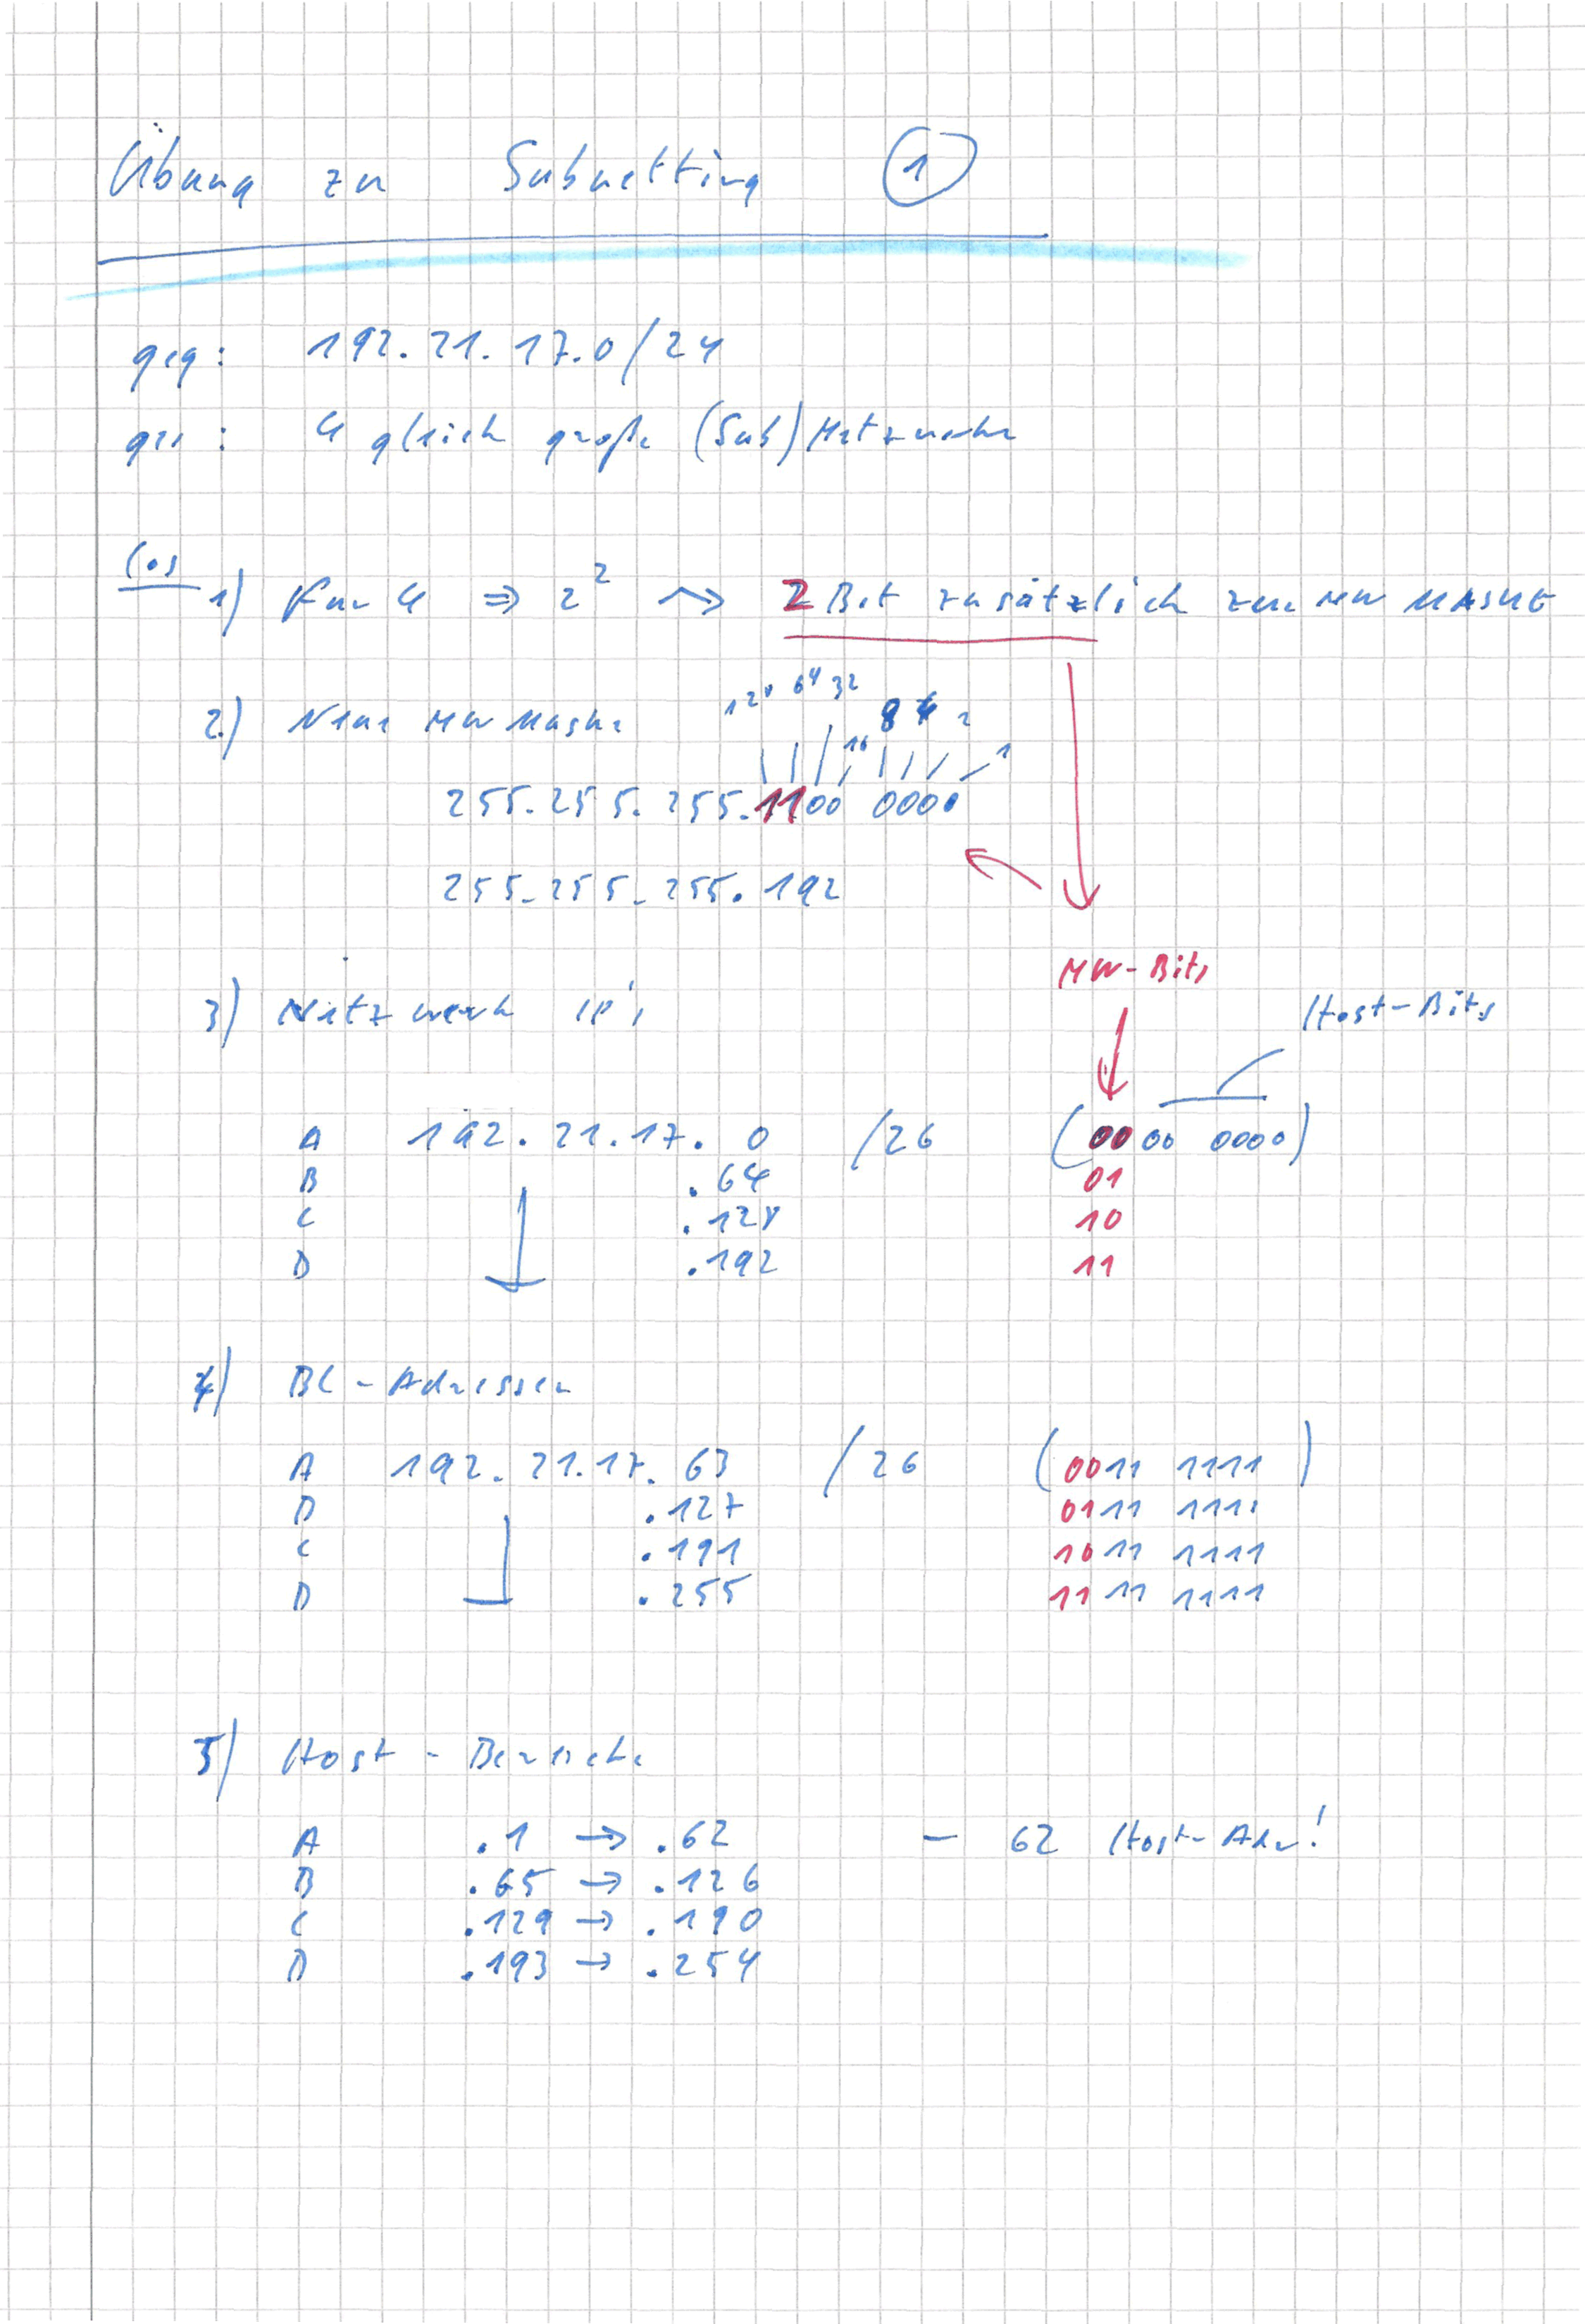 Übung zu Subnetting ①
geg: 192.21.17.0/24
ges: 4 gleich große (Sub)Netzwerke
Lös
1) Für 4 ⇒ 2² ⇝ 2 Bit zusätzlich zur NW MASKE
128 64 32
16 8 4 2 1
2.) Neue NW Maske
255.255.255.1100 0000
255.255.255.192
NW-Bits
3) Netzwerk IP's Host-Bits
A 192.21.17. 0 /26 (0000 0000)
B .64 01
C .128 10
D .192 11
4) BC-Adressen
A 192.21.17.63 /26 (0011 1111)
B .127 0111 1111
C .191 1011 1111
D .255 1111 1111
5) Host-Bereiche
A .1 → .62 – 62 Host-Adr!
B .65 → .126
C .129 → .190
D .193 → .254